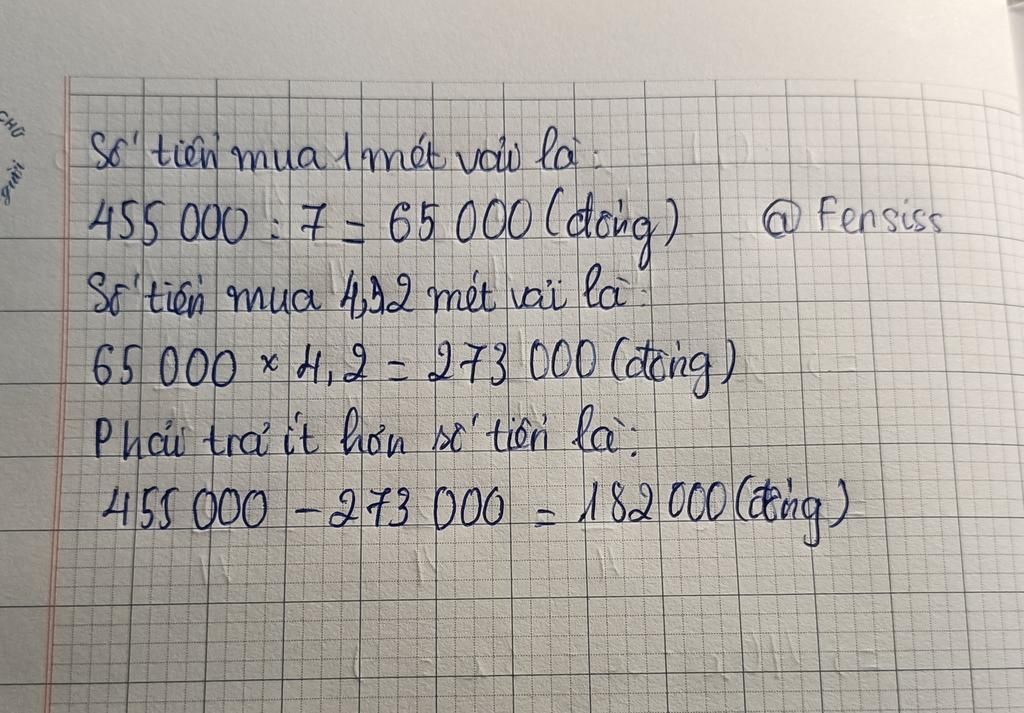 CHỮ
Số tiền mua 1 mét vải là:
455 000 : 7 = 65 000 (đồng)
@ Fensiss
Số tiền mua 4,2 mét vải là:
65 000 × 4,2 = 273 000 (đồng)
Phải trả ít hơn số tiền là:
455 000 - 273 000 = 182 000 (đồng)